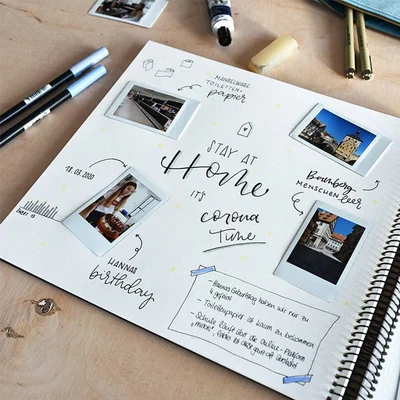 MANGELWARE
TOILETTEN-
papier
STAY AT
Home
IT'S
corona
Time
Bamberg
MENSCHENleer
18.03.2020
HANNAS
birthday
- Hannas Geburtstag haben wir nur zu
4 gefeiert
- Toilettenpapier ist kaum zu bekommen
- Schule läuft über die online-Plattform